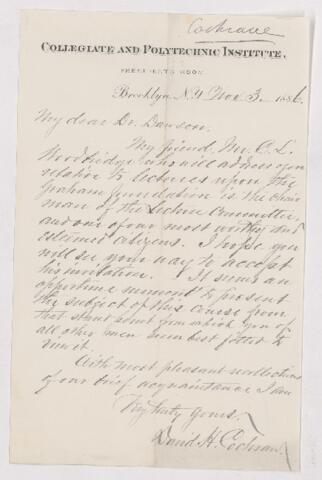 Cochrane
COLLEGIATE AND POLYTECHNIC INSTITUTE,
PRESIDENT'S ROOM.
Brooklyn, N.Y. Nov 3, 1886
My dear Dr. Dawson,
My friend, Mr. C. L.
Woodbridge who will address you
relative to lectures upon the
Graham foundation is the chair
man of the Lecture Committee,
and one of our most worthy and
esteemed citizens. I hope you
will see your way to accept
his invitation. It seems an
opportune moment to present
the subject of this course from
that stand point from which you of
all other men seem best fitted to
view it.
With most pleasant recollections
of our brief acquaintance I am
Very truly yours,
David H. Cochran